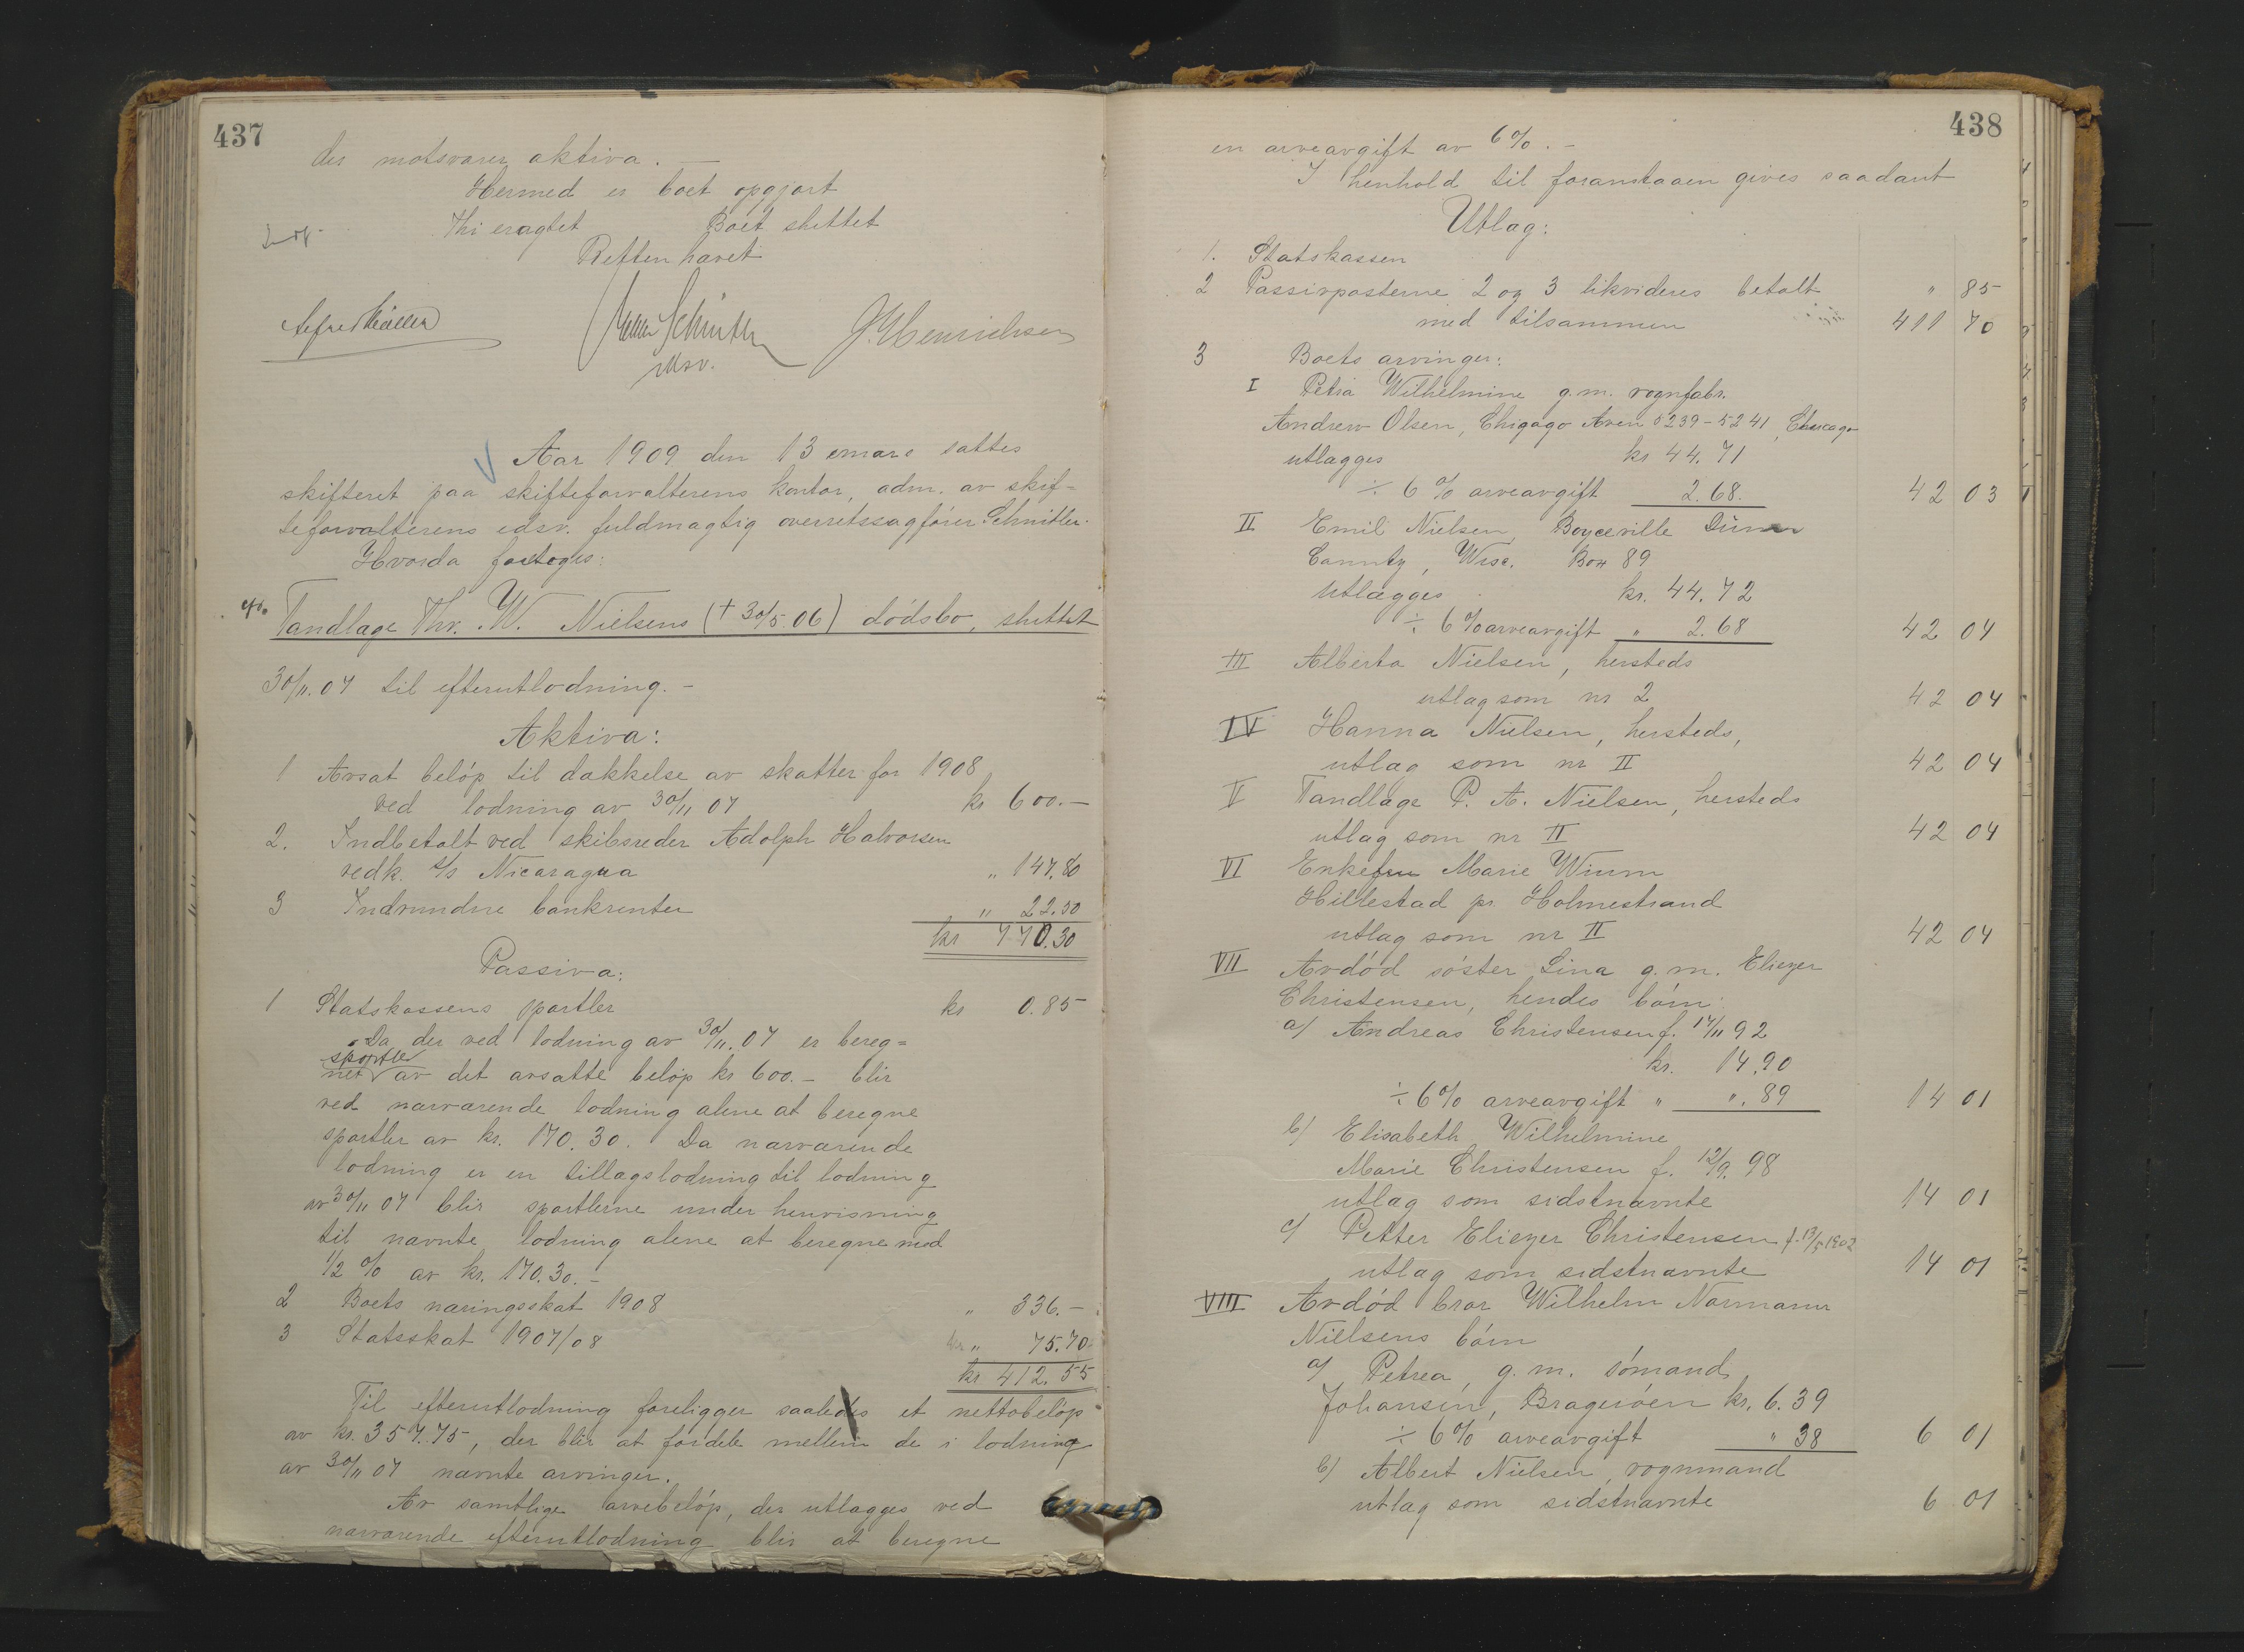 437
der motsvarer aktiva. —
Hermed er boet opgjort
Thi eragtet Boet sluttet
Retten hævet
Alfred Møller
Schnitler
edsv.
J. Henrichsen
Aar 1909 den 13 mars sattes
skifteret paa skifteforvalterens kontor, adm. av skif=
teforvalterens edsv. fuldmægtig overretssagfører Schnitler.
Hvorda foretoges:
Tandlæge Thv. W. Nielsens († 30/5. 06) dødsbo, sluttet
30/11. 07 til efterutlodning. -
Aktiva:
1 Avsat beløp til dækkelse av skatter for 1908
ved lodning av 30/11 07 kr 600.—
2. Indbetalt ved skibsreder Adolph Halvorsen
vedk. s/s Nicaragua " 147.80
3 Indvundne bankrenter " 22.50
kr 770.30
Passiva:
1 Statskassens sportler kr 0.85
Da der ved lodning av 30/11. 07 er bereg=
net sportler av det avsatte beløp kr 600.— blir
ved nærværende lodning alene at beregne
sportler av kr. 170.30. Da nærværende
lodning er en tillægslodning til lodning
av 30/11 07 blir sportlerne under henvisning
til nævnte lodning alene at beregne med
1/2 % av kr. 170.30. —
2 Boets næringsskat 1908 " 336.—
3 Statsskat 1907/08 " 75.70
kr 412.55
Til efterutlodning foreligger saaledes et nettobeløp
av kr. 357.75, der blir at fordele mellem de i lodning
av 30/11 07 nævnte arvinger.
Av samtlige arvebeløp, der utlægges ved
nærværende efterutlodning blir at beregne
438
en arveavgift av 6%. -
I henhold til foranstaaen gives saadant
Utlæg:
1. Statskassen " 85
2 Passivposterne 2 og 3 likvideres betalt
med tilsammen 411 70
3 Boets arvinger:
I Petra Wilhelmine g.m. vognfabr.
Andrew Olsen, Chigago Aven 5239-5241, Chicago
utlægges kr 44.71
÷ 6% arveavgift 2.68. 42 03
II Emil Nielsen, Boyceville Dunn
Country, Wisc. Box 89
utlægges kr. 44.72
÷ 6% arveavgift " 2.68 42 04
III Alberta Nielsen, hersteds
utlæg som nr 2 42 04
IV Hanna Nielsen, hersteds,
utlæg som nr II 42 04
V Tandlæge P. A. Nielsen, hersteds
utlæg som nr II 42 04
VI Enkefru Marie Wium
Hillestad pr. Holmestrand
utlæg som nr II 42 04
VII Avdød søster Lina g.m. Eliezer
Christensen, hendes børn:
a) Andreas Christensen f. 17/11 92
kr. 14.90
÷ 6% arveavgift " ". 89 14 01
b) Elisabeth Wilhelmine
Marie Christensen f. 12/9. 98
utlæg som sidstnævnte 14 01
c) Petter Eliezer Christensen f. 13/5 1902
utlæg som sidstnævnte 14 01
VIII Avdød bror Wilhelm Normann
Nielsens børn
a) Petrea, g.m. sømand
Johansen, Bragerøen kr. 6.39
÷ 6% arveavgift " 38 6 01
b) Albert Nielsen, vognmand
utlæg som sidstnævnte 6 01